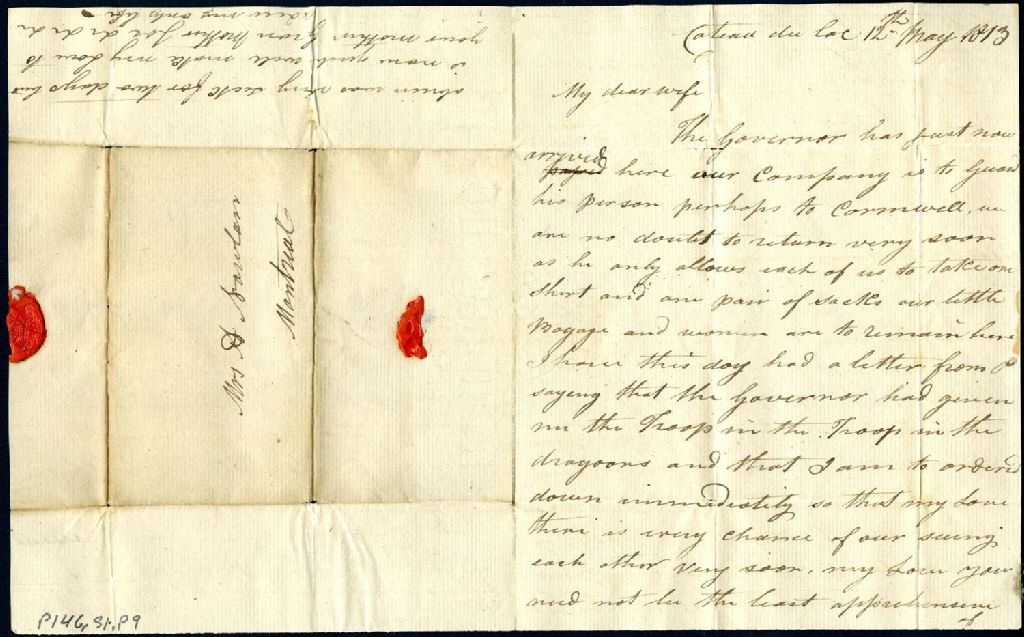 Coteau du Lac 12th May 1813
My dear wife
The Governor has just now
arrived
passed here our Company is to Guard
his person perhaps to Cornwell, we
are no doubt to return very soon
as he only allows each of us to take one
shirt and one pair of socks our little
Bagage and women are to remain here
I have this day had a letter from P
saying that the Governor had given
me the Troop in the Troop in the
dragoons and that I am to ordered
down immediatily so that my Love
there is every chance of our seeing
each other very soon. my Love you
need not be the least apprehensive
of
was very sick for two days but
is now you will make my Love to
your mother Gran Mother &
my only life
Mrs A
Montreal
P146,S1,P9